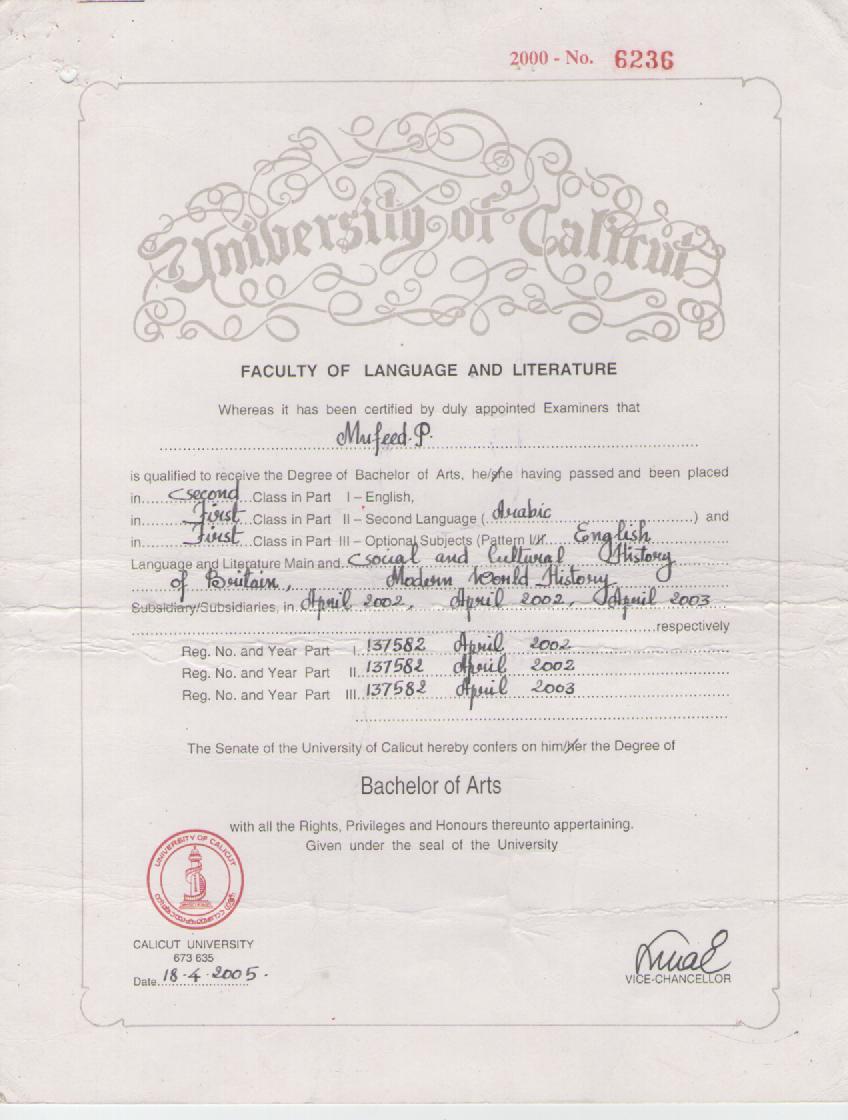 2000 - No. 6236
University of Calicut
FACULTY OF LANGUAGE AND LITERATURE
Whereas it has been certified by duly appointed Examiners that
Mufeed.P.
is qualified to receive the Degree of Bachelor of Arts, he/she having passed and been placed
in second Class in Part I – English,
in First Class in Part II – Second Language (Arabic) and
in First Class in Part III – Optional Subjects (Pattern I/II English
Language and Literature Main and Social and Cultural History
of Britain, Modern World History
Subsidiary/Subsidiaries, in April 2002, April 2002, April 2003
respectively
Reg. No. and Year Part I. 137582 April 2002
Reg. No. and Year Part II. 137582 April 2002
Reg. No. and Year Part III. 137582 April 2003
The Senate of the University of Calicut hereby confers on him/her the Degree of
Bachelor of Arts
with all the Rights, Privileges and Honours thereunto appertaining.
Given under the seal of the University
UNIVERSITY OF CALICUT
CALICUT UNIVERSITY
673 635
Date 18-4-2005.
VICE-CHANCELLOR